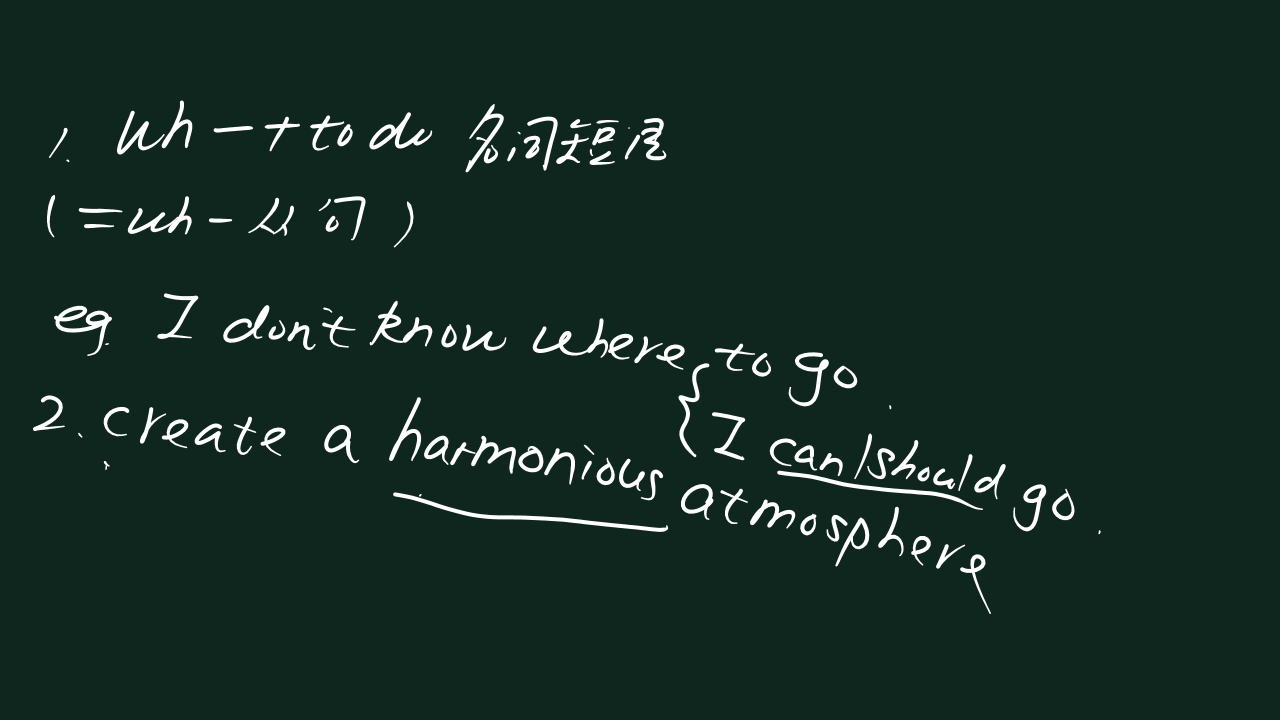 1. wh-+to do 名词短语
(=wh-从句)
eg. I don't know where to go.
{ I can/should go.
2. create a harmonious atmosphere